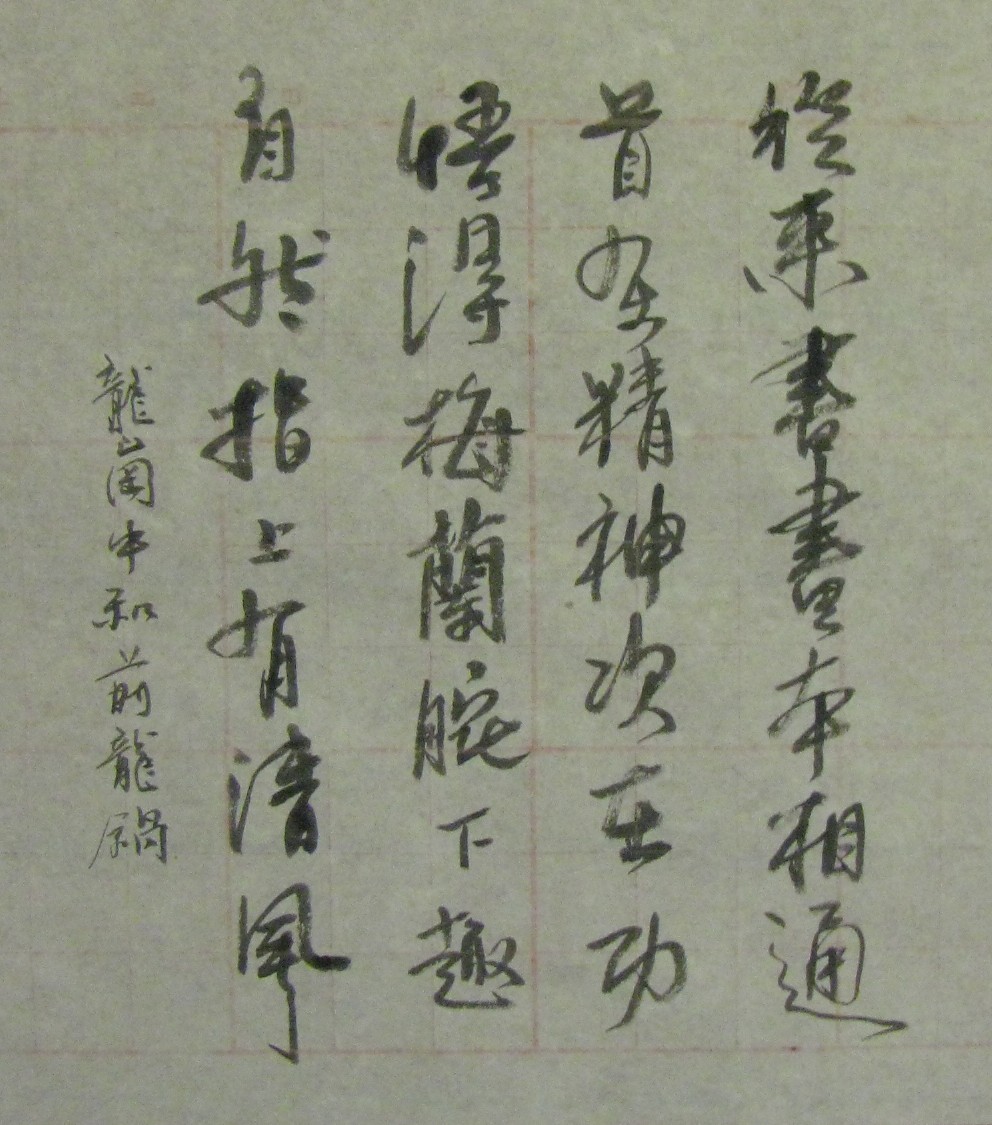 從來書畫本相通
首在精神次在功
悟得梅蘭腕下趣
自然指上有清風
龍崗中和前龍